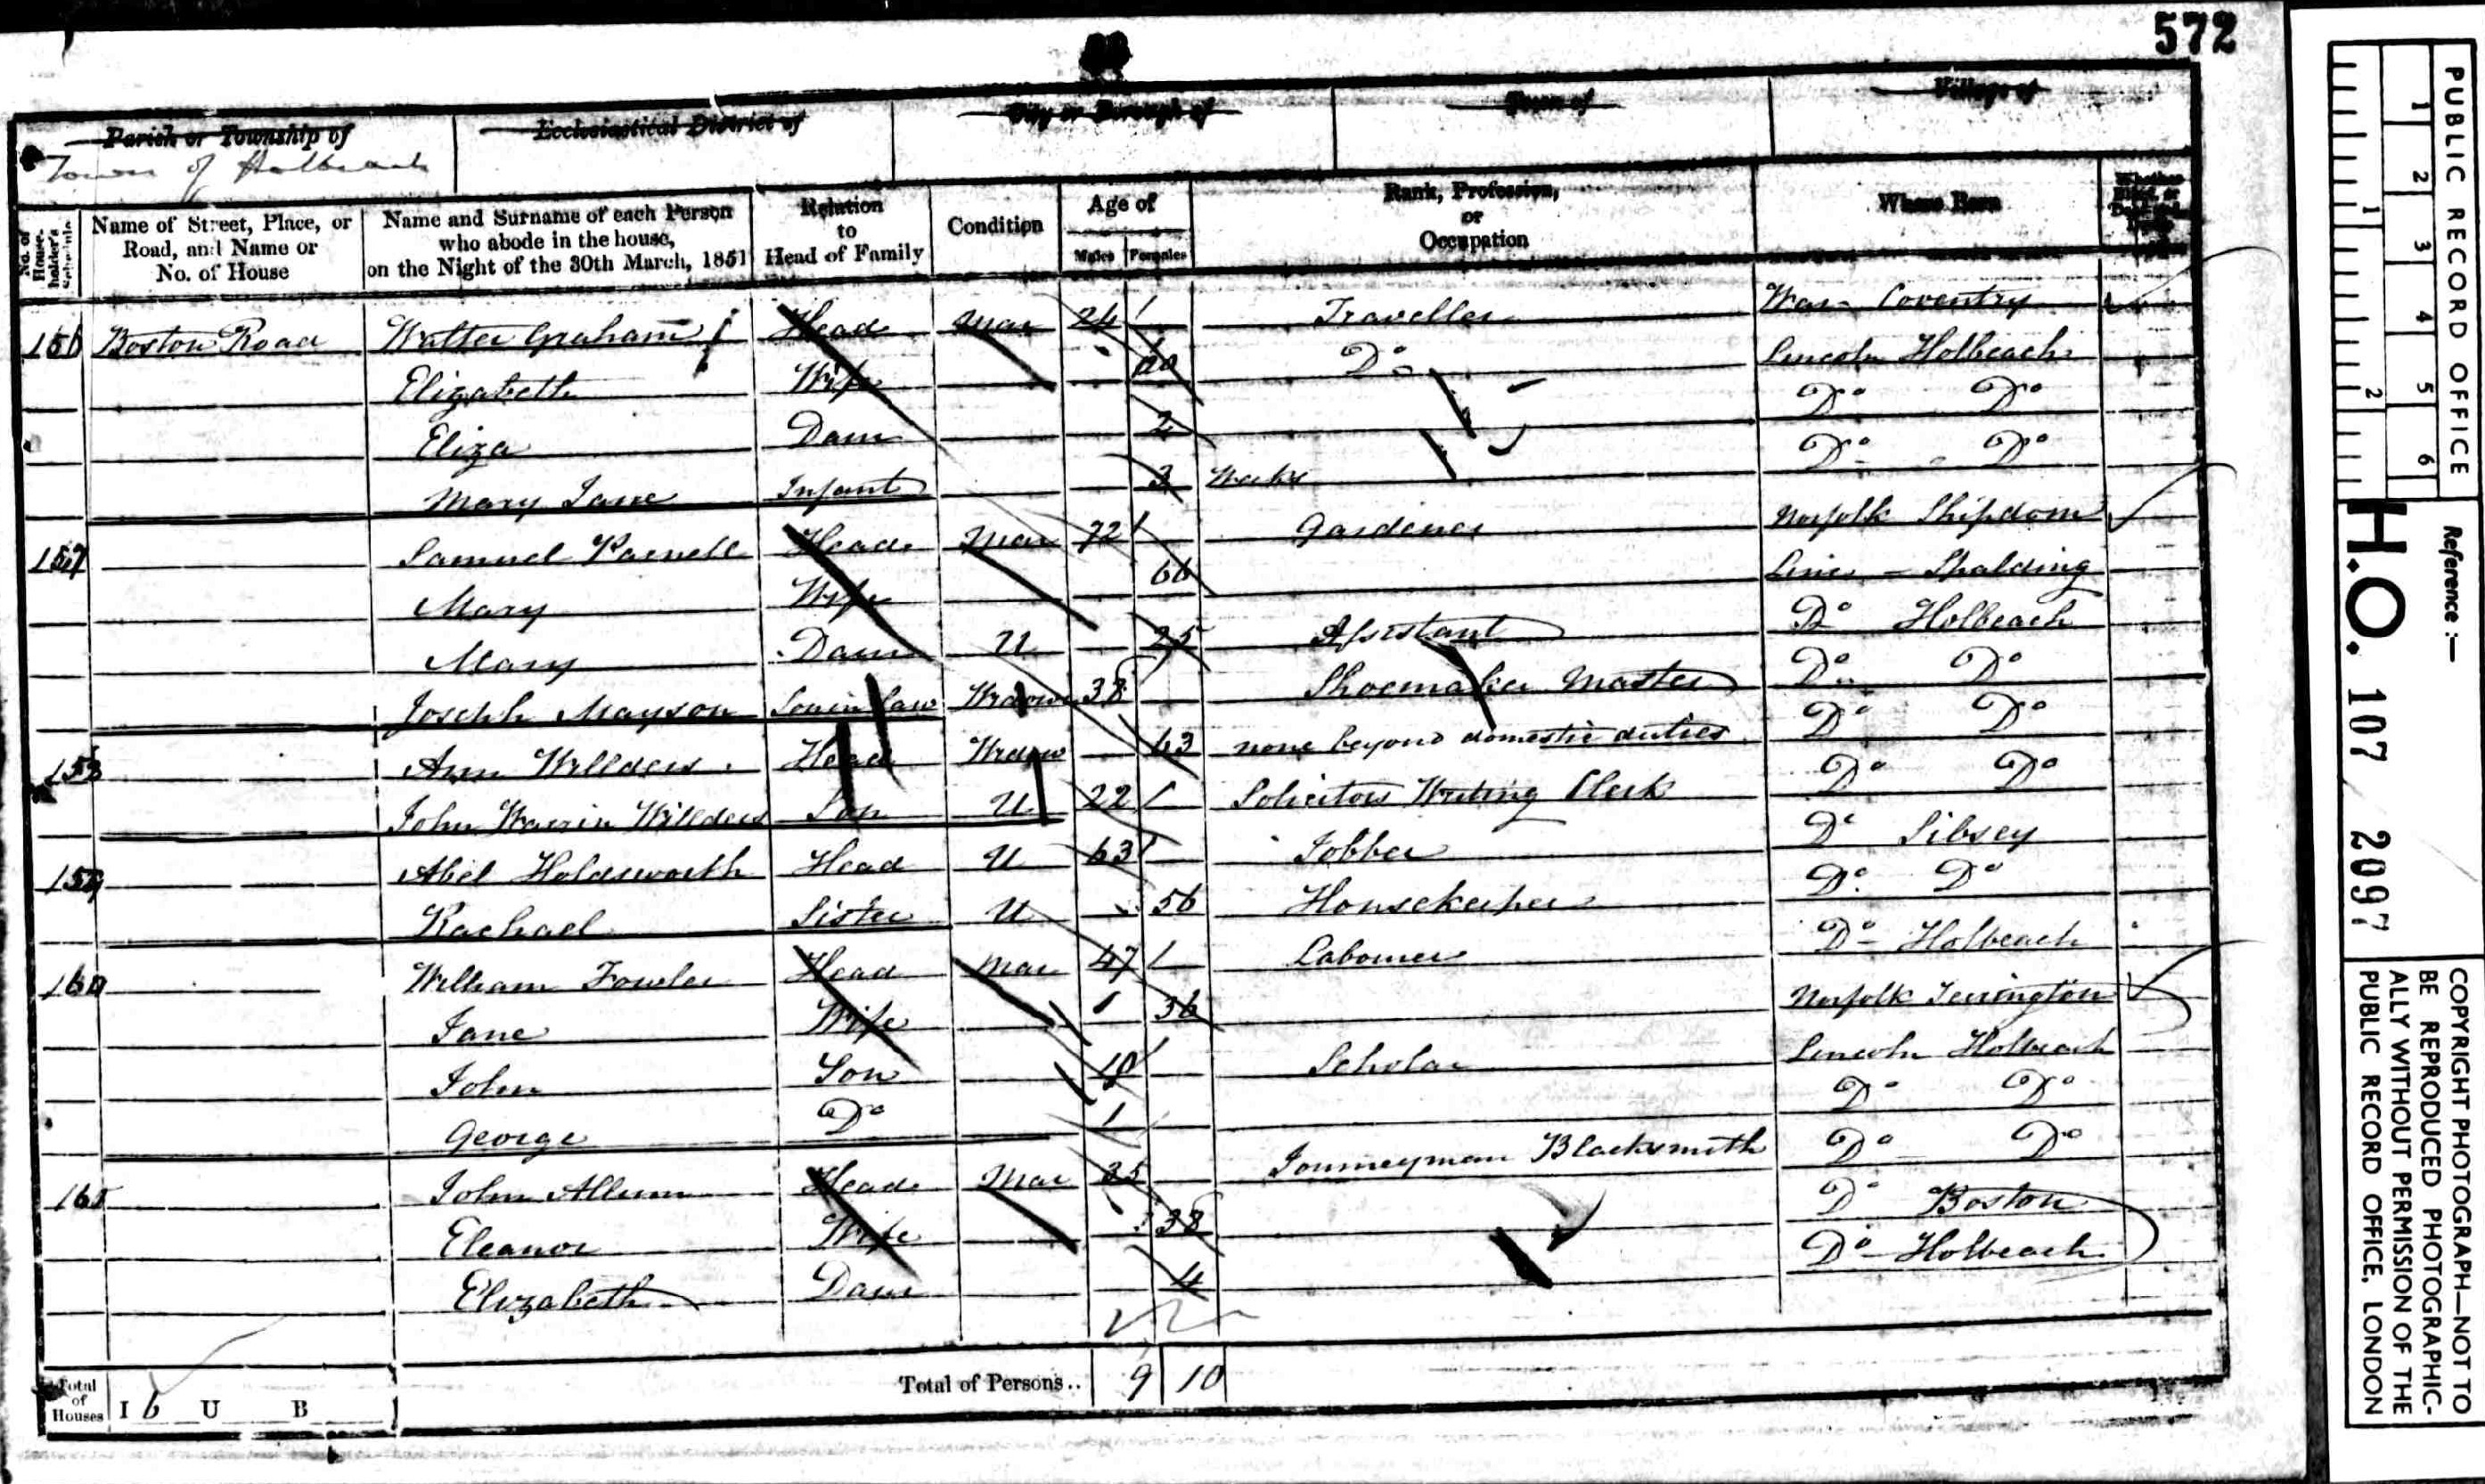 572
Parish or Township of
Ecclesiastical District of
City or Borough of
Town of
Village of
Town of Holbeach
No. of House-holder's Schedule
Name of Street, Place, or Road, and Name or No. of House
Name and Surname of each Person who abode in the house, on the Night of the 30th March, 1851
Relation to Head of Family
Condition
Age of
Males
Females
Rank, Profession, or Occupation
Where Born
156 Boston Road Walter Graham Head Mar 24 Traveller War- Coventry
Elizabeth Wife Do Lincoln Holbeach
Eliza Daur 2 Do Do
Mary Jane Infant 3 Weeks Do Do
157 Samuel Parnell Head Mar 72 Gardener Norfolk Shipdom
Mary Wife 66 Linc - Spalding
Mary Daur U 25 Assistant Do Holbeach
Joseph Mayson Son in law Widower 38 Shoemaker Master Do Do
158 Ann Willders Head Widow 63 none beyond domestic duties Do Do
John Warrin Willders Son U 22 Solicitors Writing Clerk Do Do
159 Abel Holdsworth Head U 63 Jobber Do Sibsey
Rachael Sister U 56 Housekeeper Do Do
160 William Fowler Head Mar 47 Labourer Do Holbeach
Jane Wife 36 Norfolk Terrington
John Son 10 Scholar Lincoln Holbeach
George Do 1 Do Do
161 John Allum Head Mar 35 Journeyman Blacksmith Do Do
Eleanor Wife 38 Do Boston
Elizabeth Daur 4 Do Holbeach
Total of Houses I 6 U B Total of Persons.. 9 10
PUBLIC RECORD OFFICE
1 2 3 4 5 6
1 2
Reference :—
H.O. 107 / 2097
COPYRIGHT PHOTOGRAPH—NOT TO
BE REPRODUCED PHOTOGRAPHIC-
ALLY WITHOUT PERMISSION OF THE
PUBLIC RECORD OFFICE, LONDON